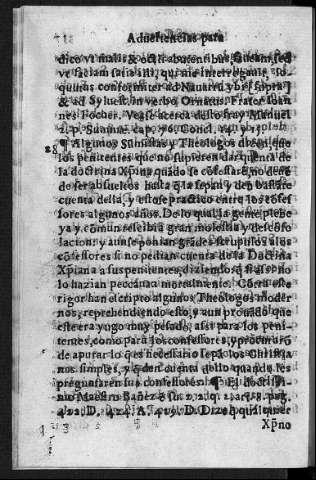 Aduertencias para
dico vt malis & oculis abutentibus
vt faciam satis illi, qui me interrogauit, lo
quutus conformiter ad Nauarrū vbi supra
& ad Syluest. in verbo Ornatus. Frater Ioan
nes Focher. Vease acerca dello fray Manuel
1. p. Summæ. cap. Concl. 14. y. 15.
28 ¶ Algunos Sumistas y Theologos dizen, que
los penitentes que no supieren dar quenta de
la doctrina Xp̄iana quādo se cōfessarē, no deuē
de ser absueltos hasta q̄ la sepā y den bastāte
cuenta della, y esto se practico entre los cōfes
sores algunos años. De lo qual la gente plebe
ya y comun rescibia gran molestia y descōso
lacion: y aun se ponian grādes scrupulos a los
cōfessores si no pedian cuenta de la Doctrina
Xp̄iana a sus penitentes, diziendo q̄ si assi no
lo hazian peccauan mortalmente. Cōtra este
rigor han escripto algunos Theologos moder
nos, reprehendiendo esto, y aun prouādo que
este era yugo muy pesado, assi para los peni-
tentes, como para los confessores, y procurarō
de apurar lo que es necessario sepā los Christia
nos simples, y q̄ den cuenta dello quando les
preguntaren sus confessores ¶ El doctissi-
mo Maestro Bañez ē sus 2. 2. q. 2. ar. 8. pag.
412. D. 414. A. 419. D. Dize q̄ qualquier
Xp̄no